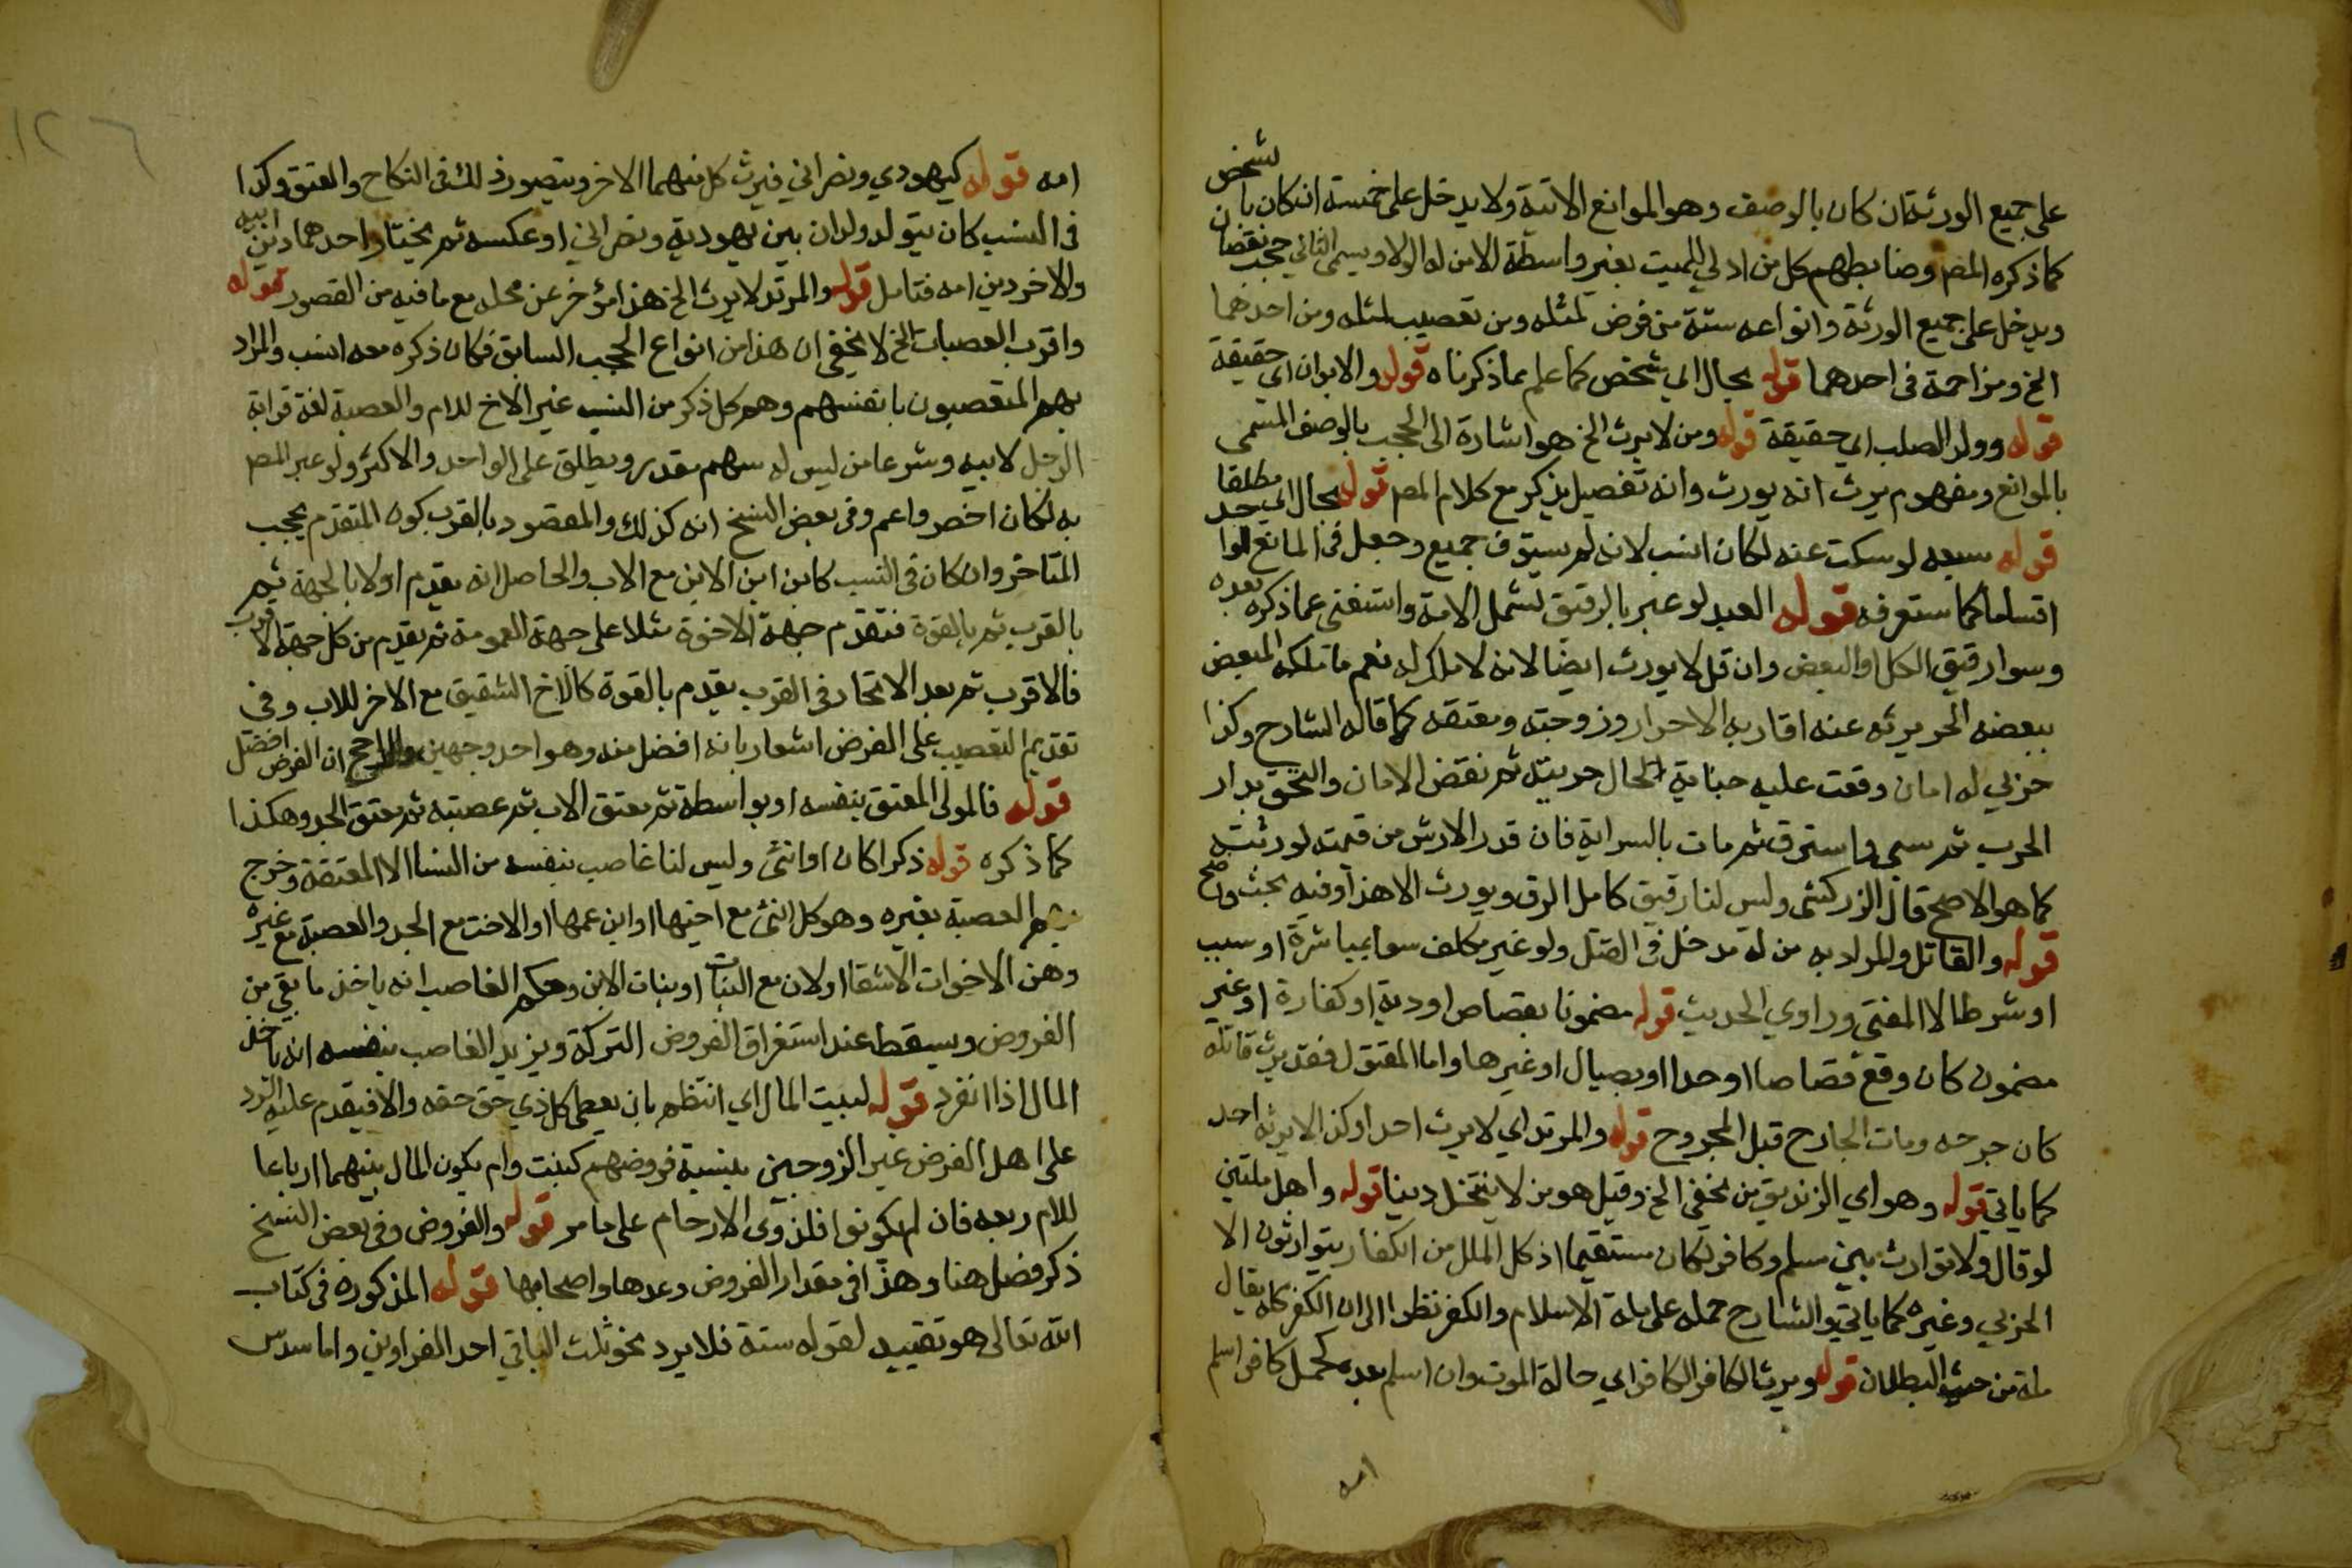 على جميع الورثة ان كان بالوصف وهو الموانع الاتية ولا يدخل على خمسة ان كان بالشخص
كما ذكره المصم وضابطهم كل من ادلي للميت بغير واسطة الا من له الولا ويسمى الثاني حجب نقصان
ويدخل على جميع الورثة وانواعه ستة من فرض لمثله ومن تعصيب لمثله ومن احدهما
الخ ومزاحمة في احدهما قوله بحال اي شخص كما علم مما ذكرناه قوله والابوان اي حقيقة
قوله وولد الصلب اي حقيقة قوله ومن لا يرث الخ هو اشارة الى الحجب بالوصف المسمى
بالموانع ومفهوم يرث انه يورث وانه تفصيل يذكر مع كلام المصم قوله بحال اي مطلقا
قوله سبعه لو سكت عنه لكان انسب لانه لم يستوف جميع وجعل في المانع
اقساما كما ستعرفه قوله العبد لو عبر بالرقيق لشمل الامة واستغنى عما ذكره بعده
وسوا رقيق الكل او البعض وان قل لا يورث ايضا لانه لا ملك له نعم ما تملكه المبعض
ببعضه الحر يرثه عنه اقاربه الاحرار وزوجته ومعتقه كما قاله الشارح وكذا
حربي له امان وقعت عليه جناية الحال حريته ثم نقض الامان والتحق بدار
الحرب ثم سبي واسترق ثم مات بالسراية فان قدر الارش من قيمته لورثته
كما هو الاصح قال الزركشي وليس لنا رقيق كامل الرق ويورث الا هذا وفيه بحث واضح
قوله والقاتل والمراد به من له مدخل في القتل ولو غير مكلف سوا بمباشرة او سبب
او شرط الا المفتى وراوي الحديث قوله مضمونا بقصاص او دية او كفارة او غير
مضمون كان وقع قصاصا او حدا او بصيال او غيرها واما المقتول فقد يرث قاتله
كان جرحه ومات الجارح قبل المجروح قوله والمرتد اي لا يرث احدا وكذا لا يرثه احد
كما ياتي قوله وهو اي الزنديق من يخفي الخ وقيل هو من لا ينتحل دينا قوله واهل ملتين
لو قال ولا توارث بين مسلم وكافر لكان مستقيما اذ كل الملل من الكفار يتوارثون الا
الحربي وغيره كما ياتي والشارح حمله على ملة الاسلام والكفر نظرا الى ان الكفر كله يقال
ملة من حيث البطلان قوله ويرث الكافر الكافر اي حالة الموت وان اسلم بعده كحمل كافر اسلم
امه
امه قوله كيهودي ونصراني فيرث كل منهما الاخر ويتصور ذلك في النكاح والعتق وكذا
في النسب كان يتولد ولدان بين يهودية ونصراني او عكسه ثم يختار احدهما دين ابيه
والاخر دين امه فتامل قوله والمرتد لا يرث الخ هذا مؤخر عن محله مع ما فيه من القصور قوله
واقرب العصبات الخ لا يخفى ان هذا من انواع الحجب السابق فكان ذكره معه انسب والمراد
بهم المتعصبون بانفسهم وهم كل ذكر من النسب غير الاخ للام والعصبة لغة قرابة
الرجل لابيه وشرعا من ليس له سهم مقدر ويطلق على الواحد والاكثر ولو عبر المصم
به لكان اخصر واعم وفي بعض النسخ انه كذلك والمقصود بالقرب كون المتقدم يحجب
المتاخر وان كان في النسب كابن ابن الابن مع الاب والحاصل انه يقدم اولا بالجهة ثم
بالقرب ثم بالقوة فتقدم جهة الاخوة مثلا على جهة العمومة ثم يقدم من كل جهة الاقرب
فالاقرب ثم بعد الاتحاد في القرب يقدم بالقوة كالاخ الشقيق مع الاخر للاب وفي
تقديم التعصيب على الفرض اشعار بانه افضل منه وهو احد وجهين والراجح ان الفرض افضل
قوله فالمولى المعتق بنفسه او بواسطة ثم معتق الاب ثم عصبته ثم معتق الجد وهكذا
كما ذكره قوله ذكرا كان او انثى وليس لنا غاصب بنفسه من النسا الا المعتقة وخرج
بهم العصبة بغيره وهو كل انثى مع اخيها او ابن عمها او الاخت مع الجد والعصبة مع غيره
وهن الاخوات الاشقا او لاب مع البنات او بنات الابن وحكم الغاصب انه ياخذ ما بقي من
الفروض ويسقط عند استغراق الفروض التركة ويزيد الغاصب بنفسه انه ياخذ
المال اذا انفرد قوله لبيت المال اي انتظم بان يعطى كل ذي حق حقه والا فيقدم عليه الرد
على اهل الفرض غير الزوجين بنسبة فروضهم كبنت وام يكون المال بينهما ارباعا
للام ربعه فان لم يكونوا فلذوى الارحام على ما مر قوله والفروض وفي بعض النسخ
ذكر فصل هنا وهذا في مقدار الفروض وعدها واصحابها قوله المذكوره في كتاب
الله تعالى هو تقييد لقوله ستة فلا يرد نحو ثلث الباقي احد الغراوين واما سدس